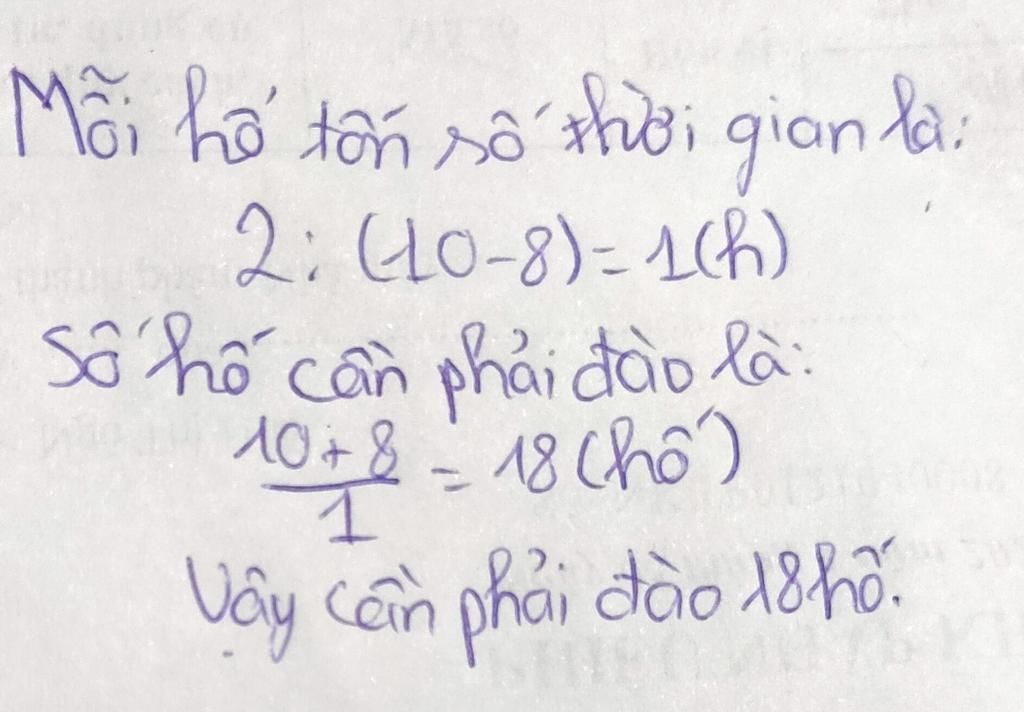 Mỗi hố tốn số thời gian là:
2: (10-8)=1(h)
Số hố cần phải đào là:
10+8/1 = 18 (hố)
Vậy cần phải đào 18 hố.